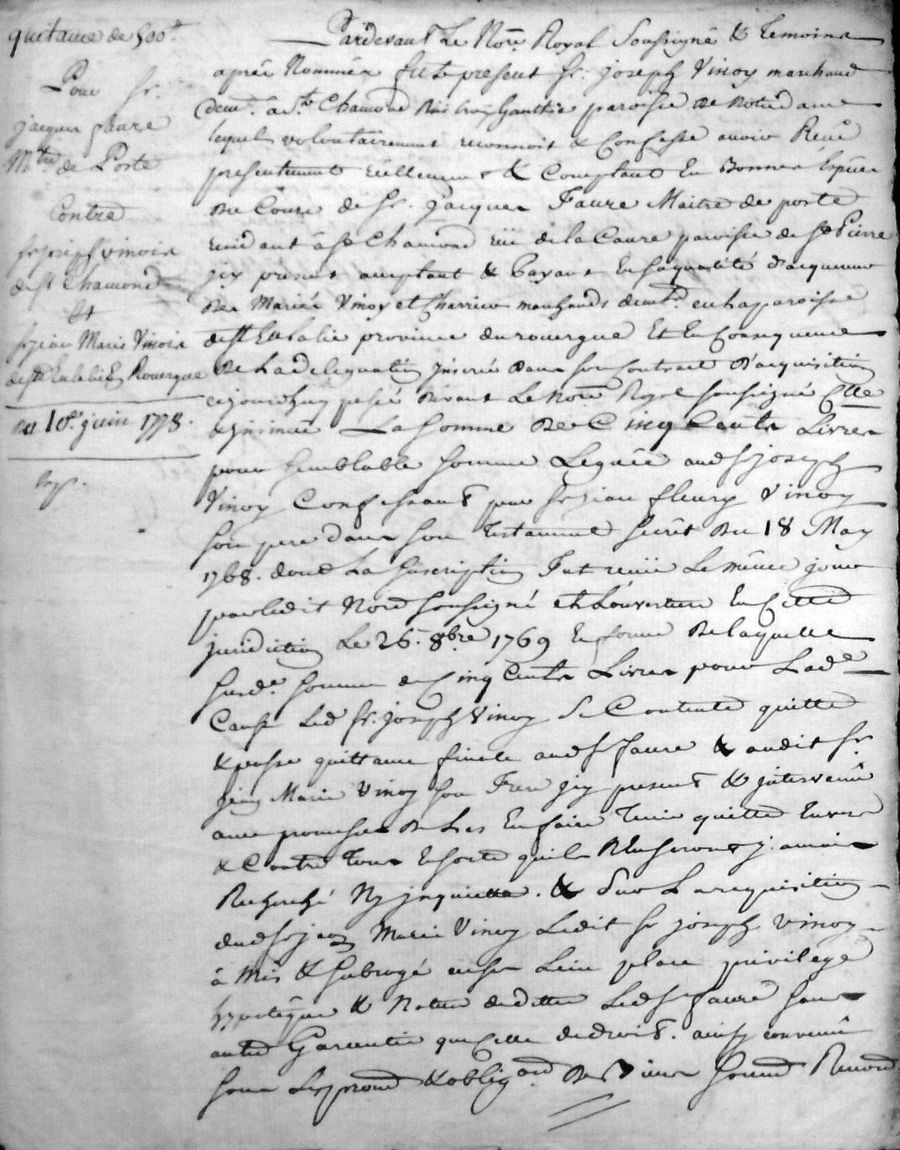 quitance de 500tt
Pour Sr.
jacques faure
Mtre de Poste
Contre
Sr joseph vinois
de St Chamond
Et
Sr jean Marie Vinois
de Ste Eulalie En Rouergue
du 10e juin 1778.
Pardevant Le Nore Royal Soussigné & temoins
aprés Nommés fut present Sr. joseph Vinoy marchand
demt. a St Chamond Rüe paroisse de Notre dame
lequel volontairement reconnoit & Confesse avoir Reçu
presentement réellement & Comptant En Bonnes Espèces
De Cours de Sr. jacques Faure Maitre de poste
residant à St Chamond rüe de la Caure paroisse de St Pierre
jcy present acceptant & Payant En sa qualité d'acquereur
Des Mariés Vinoy et Charrieu marchands demts. en la paroisse
de Ste Eulalie province du rouergue Et En Consequence
De La delegation jnserée Dans son Contract D'acquisition
cejourd'huy passé Devant Le Nore Royal soussigné
La Somme De Cinq Cents Livres
pour semblable somme Leguée aud Sr joseph
Vinoy Confessant par Sr jean fleury Vinoy
son pere dans son Testament secret Du 18 May
1768. dont La suscription fut reçue Le même jour
par ledit Nore soussigné et L'ouverture En Cette
juridiction Le 26. 8bre 1769 En forme De laquelle
susde. somme de Cinq Cents Livres pour Lade
Cause Led Sr. joseph Vinoy Se Contente quitte
& passe quittance finale aud Sr Faure & audit Sr
jean Marie Vinoy son Frere jcy present & jntervenu
avec promesse De Les En faire Tenir quitte Envers
& Contre Tous Ensorte qu'ils N'En seront jamais
Recherché Ny jnquietté. & Sur La requisition
dud Sr jean Marie Vinoy Ledit Sr joseph Vinoy
à Mis & subrogé en son Lieu place privilege
hypotéque & Nature de dette Led Sr Faure sans
autre Garentie que Celle de droit. ainsy convenu
sous Les promes & obligaons Des Biens Soumis Renonc